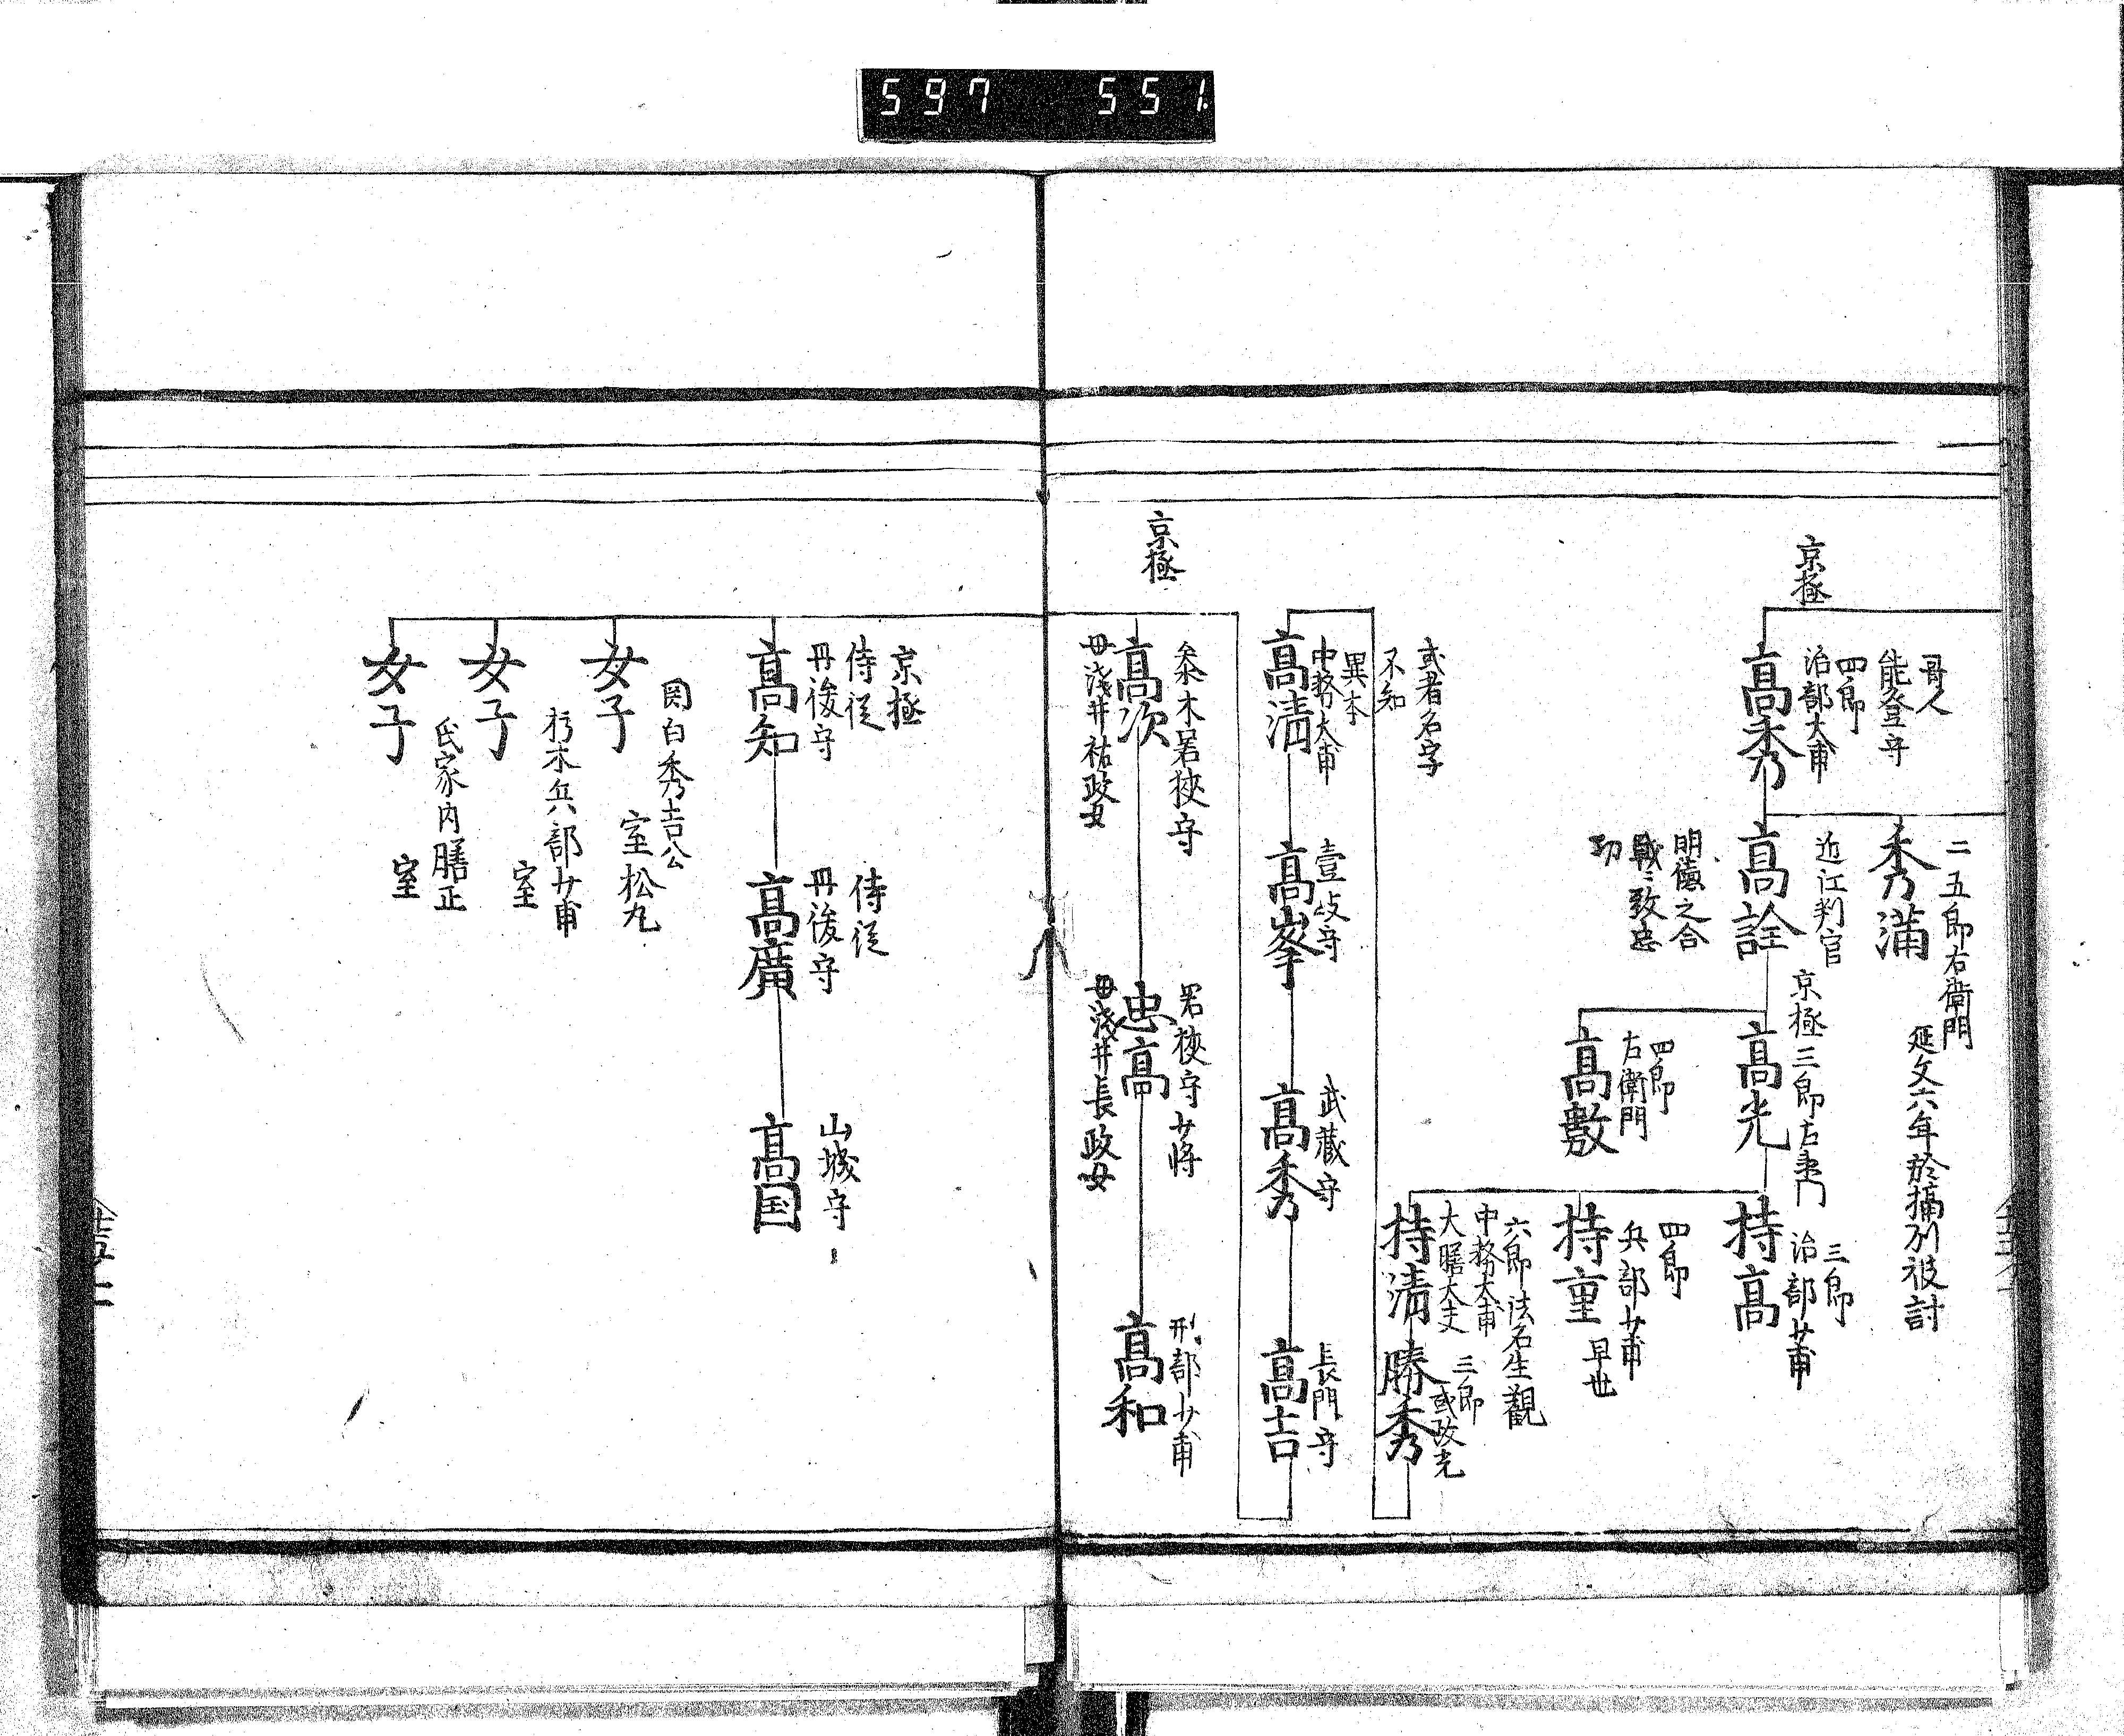 597 551
京極
哥人
能登守
四郎
治部大甫
高秀
二五郎右衛門
延文六年於摂刕被討
秀満
近江判官
高詮
明徳之合
戦ニ致忠
功
京極三郎左衛門
高光
四郎
右衛門
高数
三郎
治部少甫
持高
四郎
兵部少甫
早世
持重
六郎法名生観
中務大甫
大膳大夫
持清
三郎
或政光
勝秀
或者名字
不知
異本
中務大甫
高清
壹岐守
高峯
武蔵守
高秀
長門守
高吉
京極
参木若狭守
高次
母浅井祐政女
若狭守少将
忠高
母浅井長政女
刑部少甫
高和
京極
侍従
丹後守
高知
侍従
丹後守
高廣
山城守
高国
関白秀吉公
室松丸
女子
朽木兵部少甫
室
女子
氏家内膳正
室
女子